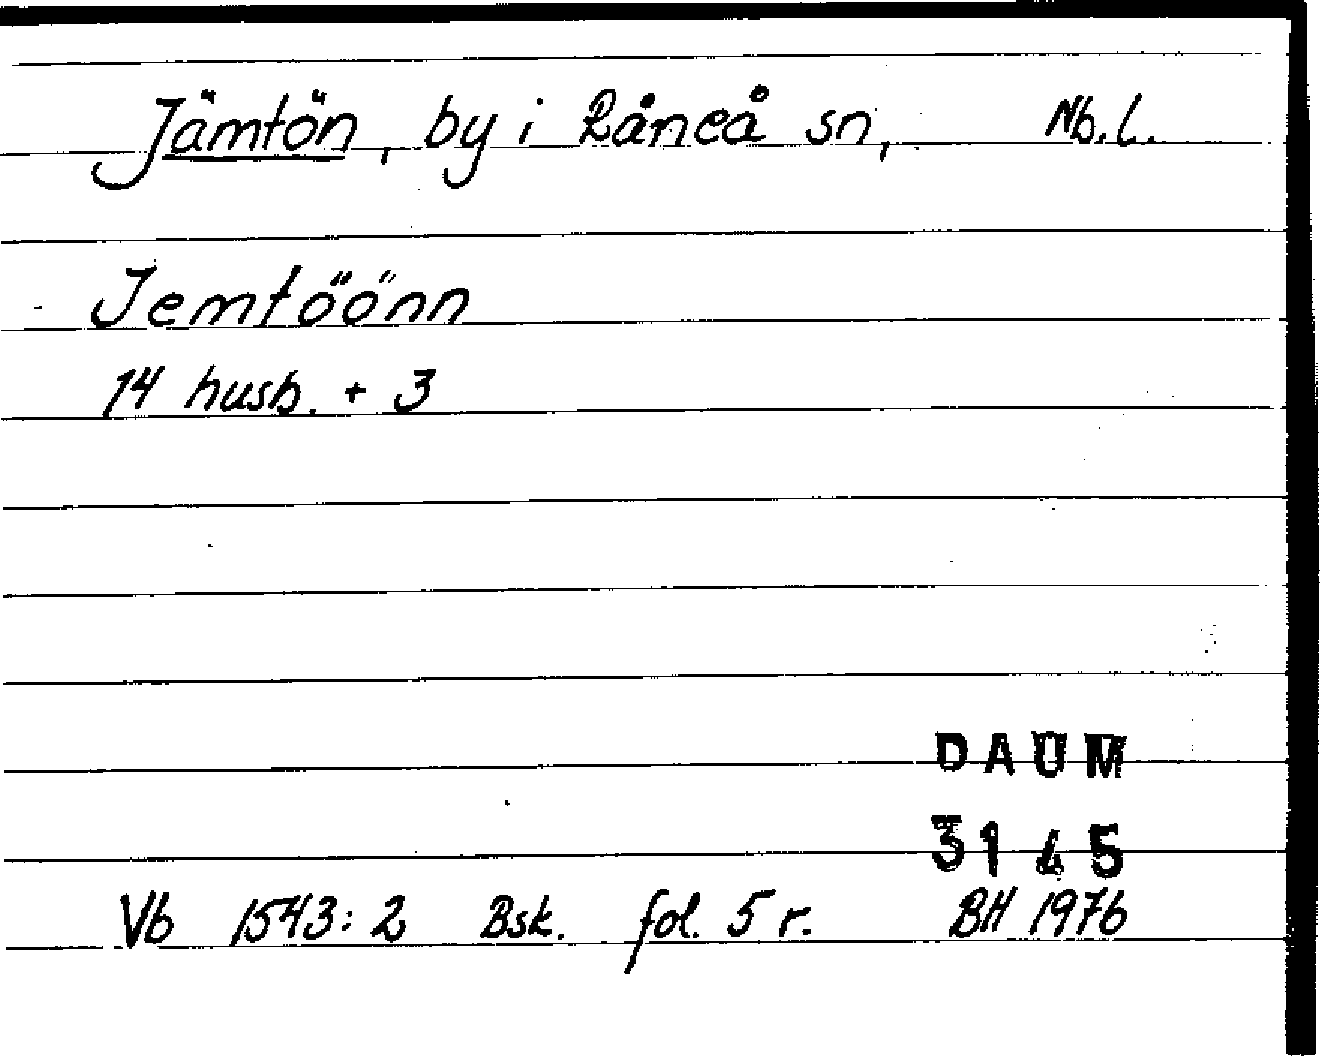 Jämtön, by i Råneå sn, Nb.l.
Jemtöönn
14 husb. + 3
DAUM
3145
Vb 1543:2 Bsk. fol. 5 r. BH 1976